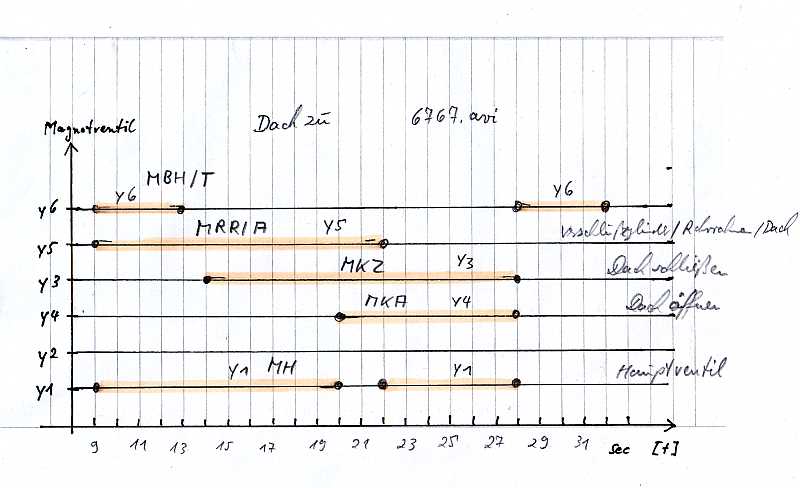 Magnetventil
Dach zu 6767.avi
MBH/T
y6 y6 y6
MRR/A y5
y5
Verschlußzylinder/Rohrrahmen/Dach
y3 MKZ y3 Dach schließen
y4 MKA y4 Dach öffnen
y2
y1 y1 MH y1 Hauptventil
9 11 13 15 17 19 21 23 25 27 29 31 sec [t]